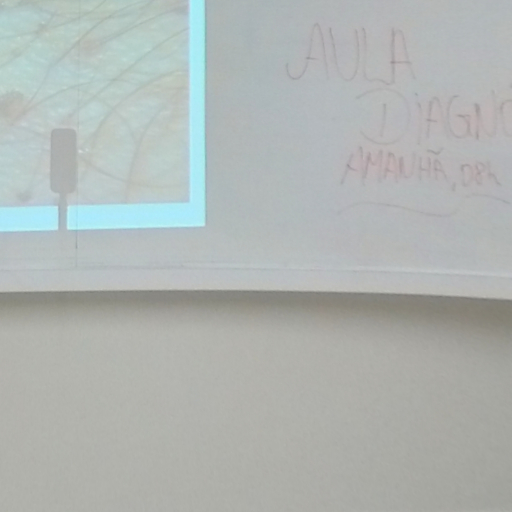 AULA
DIAGNÓ
AMANHÃ, 08h